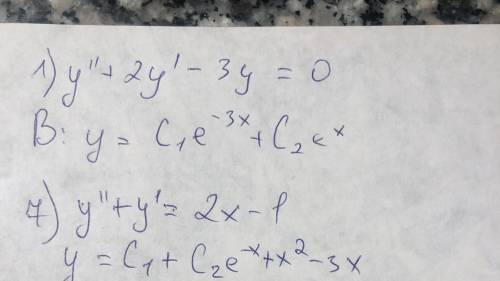 1) y'' + 2y' - 3y = 0
B: y = C₁e⁻³ˣ + C₂eˣ
7) y'' + y' = 2x - 1
y = C₁ + C₂e⁻ˣ + x² - 3x